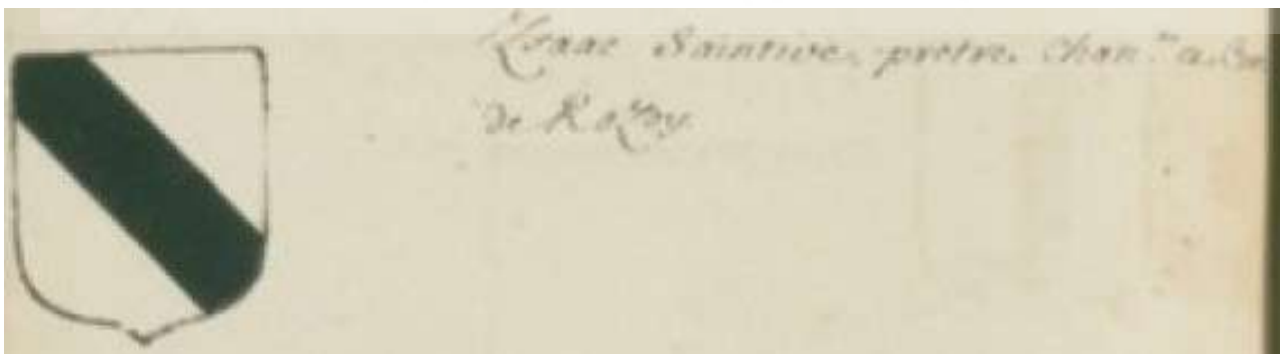 Isaac Saintive, prêtre, Chan.ne
de Rozoy.